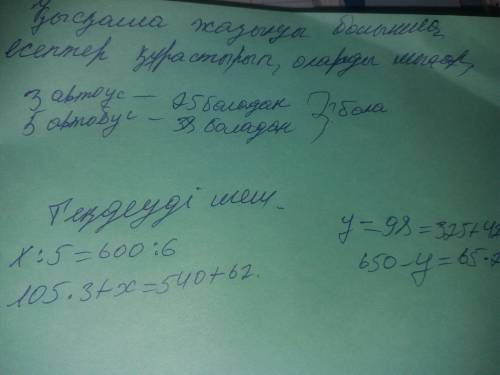 Қысқаша жазуды бойынша
есептер құрастырып, оларды шығар,
3 автоус — 25 баладан
5 автобус — 38 баладан } ? бала
Теңдеуді шеш.
x : 5 = 600 : 6
105 · 3 + x = 540 + 62.
y = 98 = 325 + 42
650 - y = 65 ·